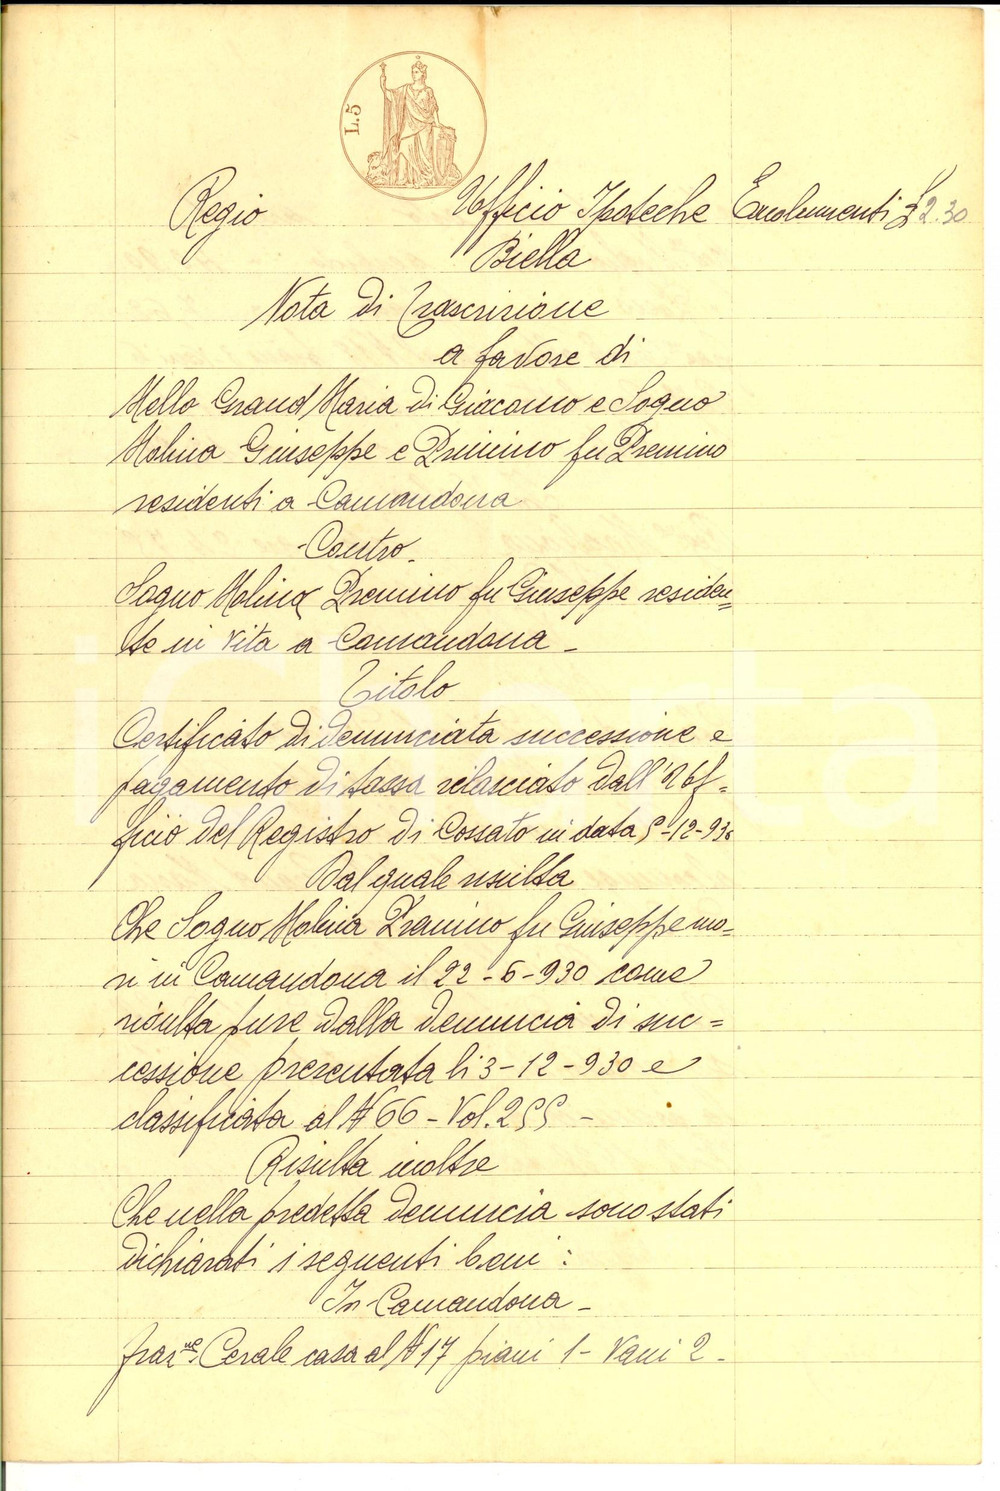 L.5
Regio Ufficio Ipoteche Emolumenti £ 2.30
Biella
Nota di Trascrizione
a favore di
Mello Grand Maria di Giacomo e Sogno
Molina Giuseppe e Primino fu Premino
residenti a Camandona
Contro
Sogno Molina Premino fu Giuseppe residen=
te in vita a Camandona -
Titolo
Certificato di denunciata successione e
pagamento di tassa rilasciato dall'Uf-
ficio del Registro di Cossato in data 5-12-930
Dal quale risulta
Che Sogno Molina Premino fu Giuseppe mo-
rì in Camandona il 22-6-930 come
risulta pure dalla denuncia di suc=
cessione presentata li 3-12-930 e
classificata al N 66 - Vol. 255 -
Risulta inoltre
Che nella predetta denuncia sono stati
dichiarati i seguenti beni:
In Camandona -
fraz.ne Cerale casa al N 17 piani 1 - Vani 2 -